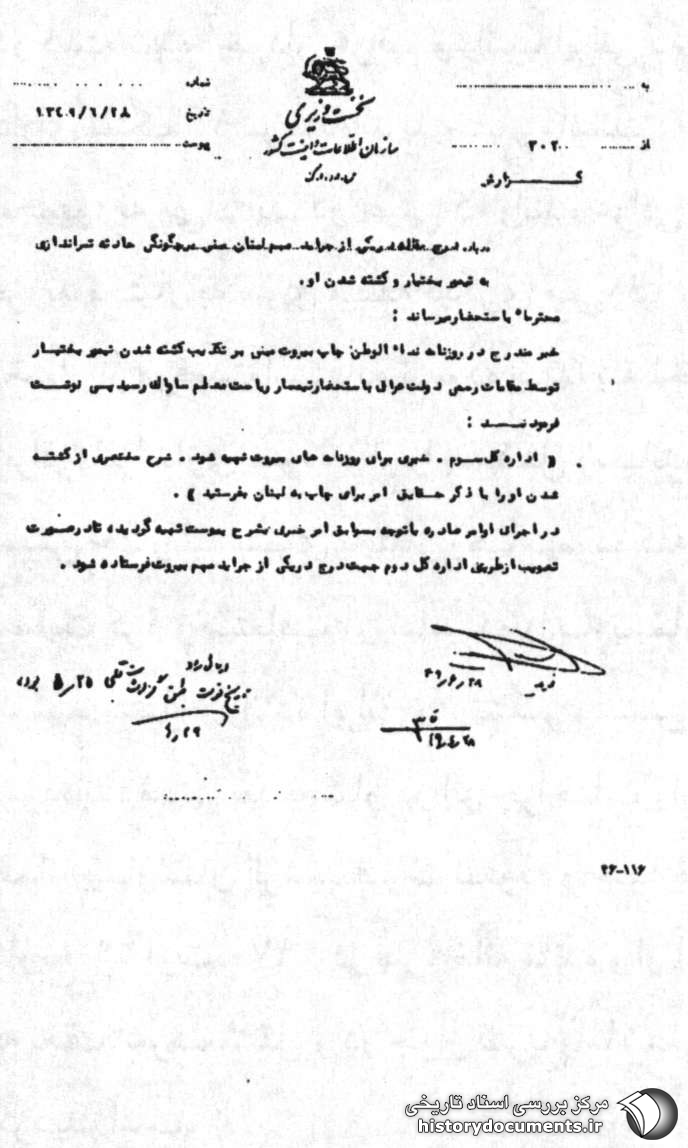 نخست وزیری
سازمان اطلاعات و امنیت کشور
س.ا.و.ا.ک
به
از ۳۰۲
شماره
تاریخ ۱۳۴۹/۶/۲۸
پیوست
گزارش
درباره درج مقاله در یکی از جراید مهم لبنان مبنی بر چگونگی حادثه تیراندازی
به تیمور بختیار و کشته شدن او.
محترما" باستحضار میرساند :
خبر مندرج در روزنامه نداء الوطن چاپ بیروت مبنی بر تکذیب کشته شدن تیمور بختیار
توسط مقامات رسمی دولت عراق باستحضار تیمسار ریاست معظم ساواک رسید پی نوشت
فرمودند :
« اداره کل سوم . خبری برای روزنامه های بیروت تهیه شود . شرح مختصری از کشته
شدن او را با ذکر حقایق امر برای چاپ به لبنان بفرستید » .
در اجرای اوامر صادره باتوجه بسوابق امر خبری بشرح پیوست تهیه گردیده تا در صورت
تصویب از طریق اداره کل دوم جهت درج در یکی از جراید مهم بیروت فرستاده شود .
۴۹/۶/۲۸
۲۶-۱۱۶
مرکز بررسی اسناد تاریخی
historydocuments.ir